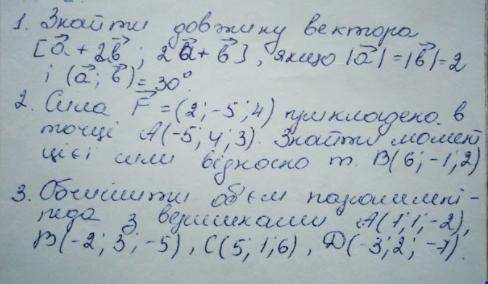 1. Знайти довжину вектора
[a⃗ + 2b⃗ ; 2a⃗ + b⃗], якщо |a⃗| = |b⃗| = 2
і (a⃗; b⃗) = 30°.
2. Сила F⃗ = (2; -5; 4) прикладено в
точці A(-5; 4; 3). Знайти момент
цієї сили відносно т. B(6; -1; 2)
3. Обчислити об'єм паралелепі-
педа з вершинами A(1; 1; -2),
B(-2; 3; -5), C(5; 1; 6), D(-3; 2; -7).